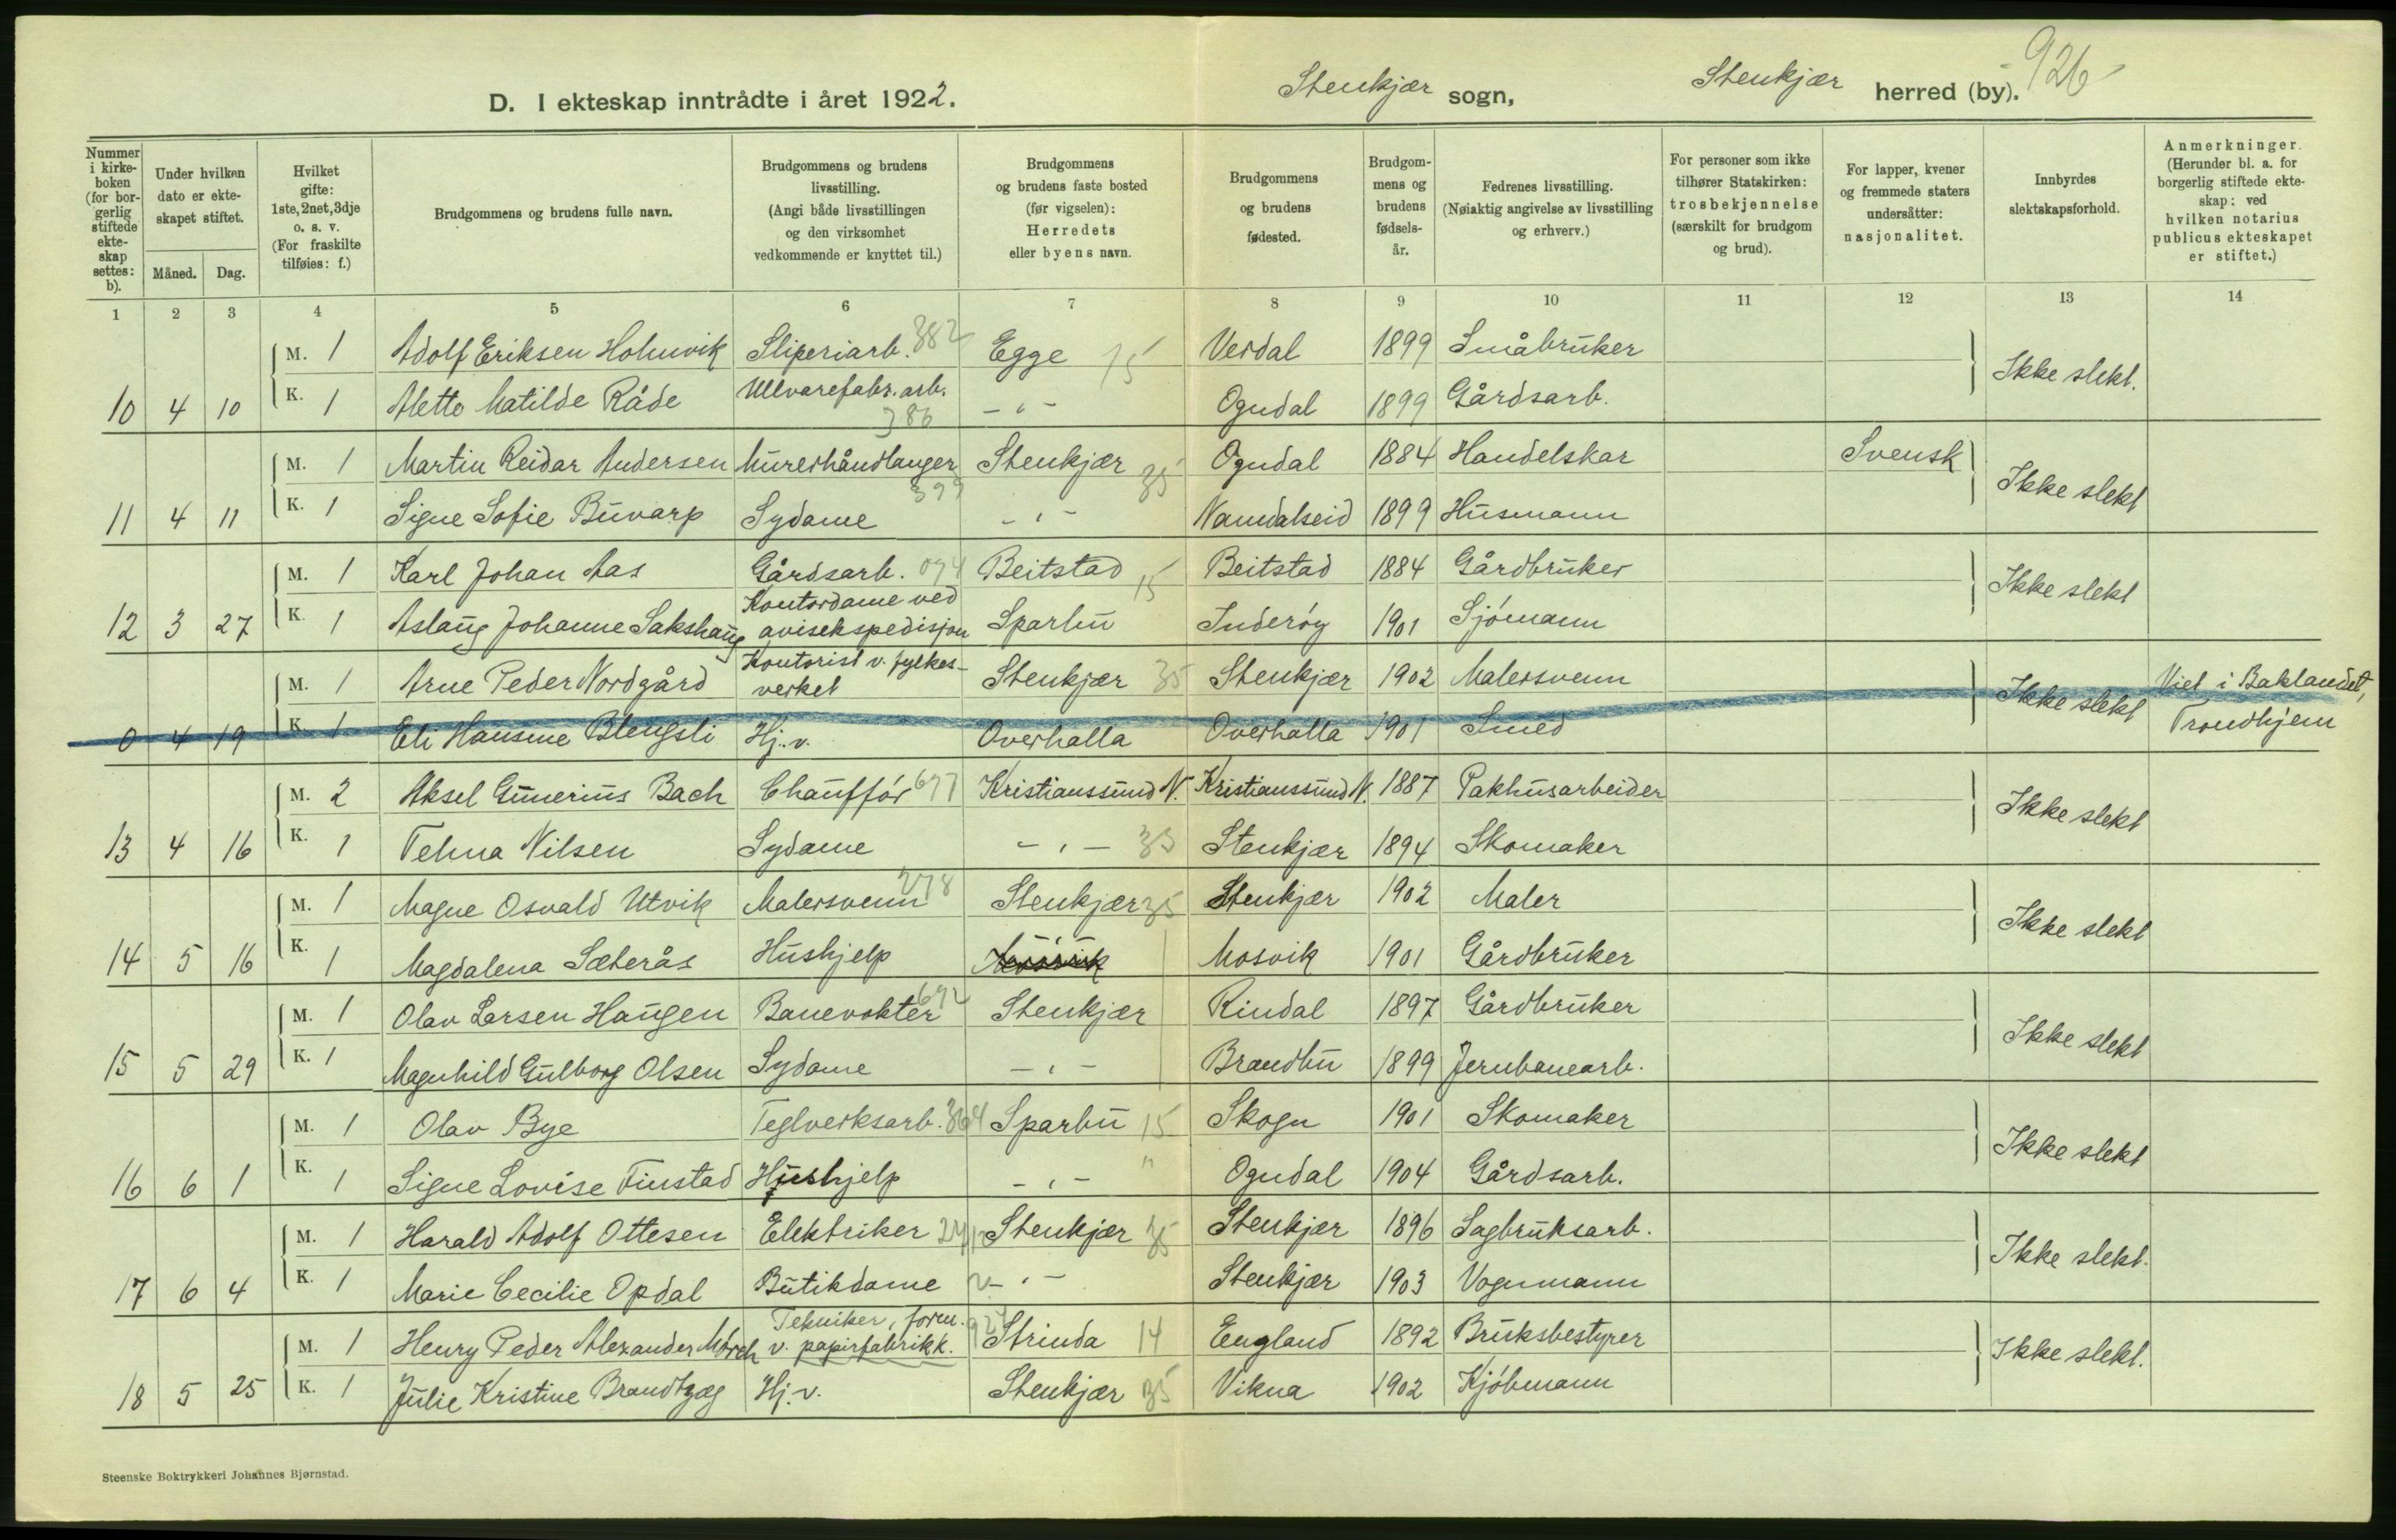 D. I ekteskap inntrådte i året 1922.
Stenkjær sogn, Stenkjær herred (by). 926
Nummer i kirkeboken (for borgerlig stiftede ekteskap settes: b).
Under hvilken dato er ekteskapet stiftet.
Måned. Dag.
Hvilket gifte: 1ste, 2net, 3dje o. s. v. (For fraskilte tilføies: f.)
Brudgommens og brudens fulle navn.
Brudgommens og brudens livsstilling. (Angi både livsstillingen og den virksomhet vedkommende er knyttet til.)
Brudgommens og brudens faste bosted (før vigselen): Herredets eller byens navn.
Brudgommens og brudens fødested.
Brudgommens og brudens fødselsår.
Fedrenes livsstilling. (Nøiaktig angivelse av livsstilling og erhverv.)
For personer som ikke tilhører Statskirken: trosbekjennelse (særskilt for brudgom og brud).
For lapper, kvener og fremmede staters undersåtter: nasjonalitet.
Innbyrdes slektskapsforhold.
Anmerkninger. (Herunder bl. a. for borgerlig stiftede ekteskap: ved hvilken notarius publicus ekteskapet er stiftet.)
1 2 3 4 5 6 7 8 9 10 11 12 13 14
M. 1 Adolf Eriksen Holmvik Sliperiarb. 382 Egge 15 Verdal 1899 Småbruker Ikke slekt.
10 4 10 K. 1 Mette Matilde Råde Ullvarefabr. arb. 386 - " - Ogndal 1899 Gårdsarb.
M. 1 Martin Reidar Andersen Murerhåndlanger 399 Stenkjær 35 Ogndal 1884 Handelskar Svensk Ikke slekt
11 4 11 K. 1 Signe Sofie Buvarp Sydame - " - Namdalseid 1899 Husmann
M. 1 Karl Johan Aas Gårdsarb. 074 Beitstad 15 Beitstad 1884 Gårdbruker Ikke slekt
12 3 27 K. 1 Aslaug Johanne Sakshaug Kontordame ved avisekspedisjon Sparbu Inderøy 1901 Sjómann
M. 1 Arne Peder Nordgård Kontorist v. fylkesverket Stenkjær 35 Stenkjær 1902 Malersvenn Ikke slekt Viet i Baklandet, Trondhjem
0 4 19 K. 1 Eli Hansine Blengsli Hj. v. Overhalla Overhalla 1901 Smed
M. 2 Aksel Gunerius Bach Chauffór 677 Kristianssund N. Kristianssund N. 1887 Pakhusarbeider Ikke slekt
13 4 16 K. 1 Telma Nilsen Sydame - " - 35 Stenkjær 1894 Skomaker
M. 1 Magne Osvald Utvik Malersvenn 278 Stenkjær 35 Stenkjær 1902 Maler Ikke slekt
14 5 16 K. 1 Magdalena Sæterås Hushjelp - " - Mosvik Mosvik 1901 Gårdbruker
M. 1 Olav Larsen Haugen Banevokter 672 Stenkjær Rindal 1897 Gårdbruker Ikke slekt
15 5 29 K. 1 Magnhild Gulborg Olsen Sydame - " - Brandbu 1899 Jernbanearb.
M. 1 Olav Bye Teglverksarb. 364 Sparbu 15 Skogn 1901 Skomaker Ikke slekt
16 6 1 K. 1 Signe Lovise Finstad Hushjelp - " - " Ogndal 1904 Gårdsarb.
M. 1 Harald Adolf Ottesen Elektriker Stenkjær 35 Stenkjær 1896 Sagbruksarb. Ikke slekt.
17 6 4 K. 1 Marie Cecilie Opdal Butikdame - " - Stenkjær 1903 Vognmann
M. 1 Henry Peder Alexander Mørch Tekniker, form. v. papirfabrikk. Strinda 14 England 1892 Bruksbestyrer Ikke slekt.
18 5 25 K. 1 Julie Kristine Brandtzæg Hj. v. Stenkjær 35 Vikna 1902 Kjóbmann
Steenske Boktrykkeri Johannes Bjørnstad.